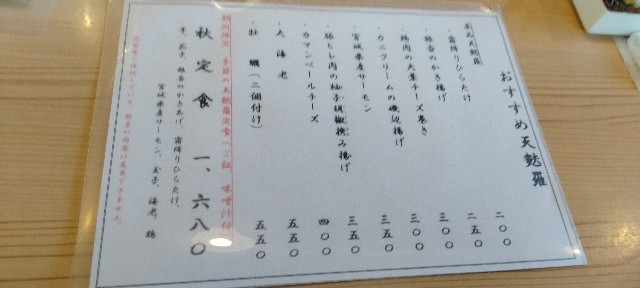 おすすめ天麩羅
・霜降りひらたけ 二〇〇
・銀杏のかき揚げ 二五〇
・鶏肉の大葉チーズ巻き 三〇〇
・カニクリームの磯辺揚げ 三〇〇
・宮城県産サーモン 三五〇
・豚ヒレ肉の柚子胡椒挟み揚げ 三五〇
・カマンベールチーズ 四〇〇
・大海老 五五〇
・牡蠣(二個付け) 五五〇
期間限定 季節の天麩羅定食(ご飯、味噌汁付
秋定食 一、六八〇
茄子、銀杏のかきあげ、霜降りひらたけ、
宮城県産サーモン、玉子、海老、鶏